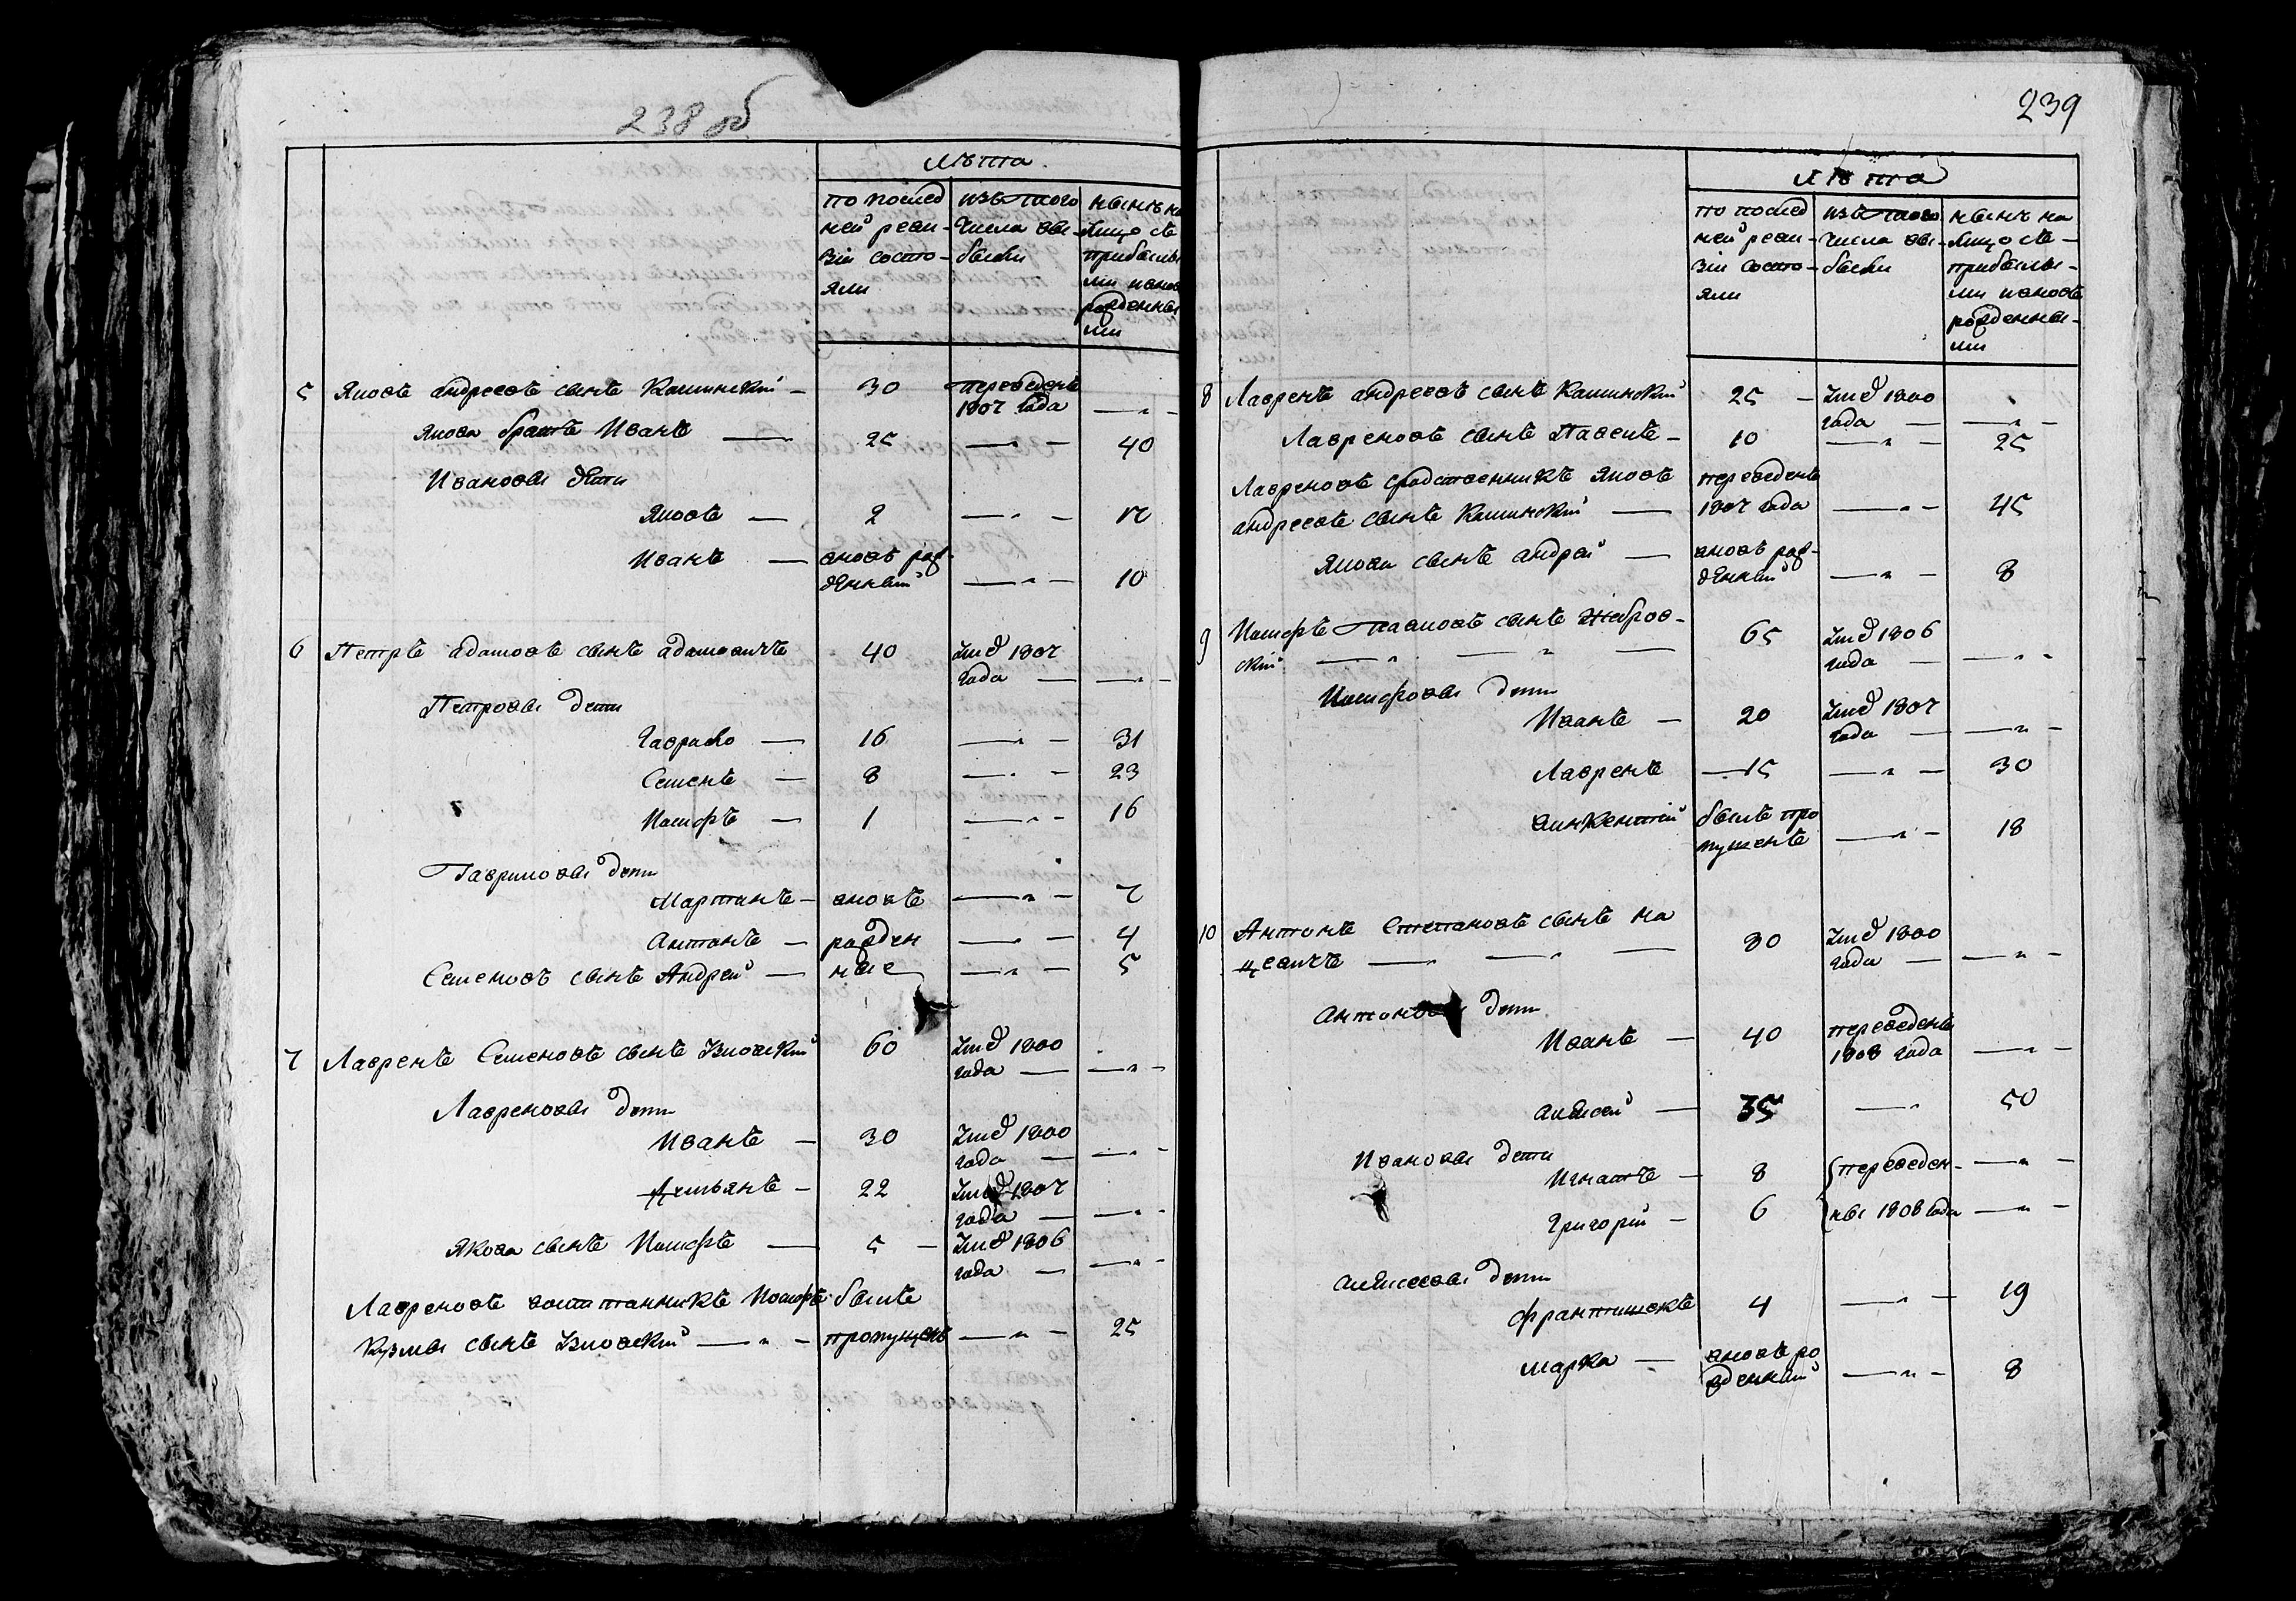 238 об
Лѣта
по послед
ней реви-
зіи состо-
яли
изъ того
числа вы-
были
нынѣ на
лицо съ
прибылы
ми и новорожденны
ми
5 Яковъ андреевъ сынъ Калиновскій — 30 переведенъ
1807 года — " —
Якова братъ Иванъ — 25 — " — 40
Ивановы дѣти
Яковъ — 2 — " — 17
Иванъ — вновь рож-
денный — " — 10
6 Петръ адамовъ сынъ адамовичъ 40 Умѐ 1807
года — — " —
Петровы дети
Гаврило — 16 — " — 31
Семенъ — 8 — " — 23
Иосифъ — 1 — " — 16
Гавриловы дети
Мартинъ — вновь — " — 7
Антонъ — рожден — " — 4
Семеновъ сынъ Андрей — ные — " — 5
7 Лавренъ Семеновъ сынъ 60 Умѐ 1800
года — — " —
Лавреновы дети
Иванъ — 30 Умѐ 1800
года — — " —
Демьянъ — 22 Умѐ 1807
года — — " —
Якова сынъ Иосифъ — 5 — Умѐ 1806
года — — " —
Лавреновъ воспитанникъ Иосифъ былъ
Кузмы сынъ — " — пропущенъ — " — 25
239
Лѣта
по послед
ней реви-
зіи состо-
яли
изъ того
числа вы-
были
нынѣ на
лицо съ —
прибылы-
ми и новорожденны-
ми
8 Лавренъ андреевъ сынъ Калиновскій 25 — Умѐ 1800
года — — " —
Лавреновъ сынъ Павелъ — 10 — " — 25
Лавреновъ сродственникъ Яковъ переведенъ
андреевъ сынъ Калиновскій — 1807 года — " — 45
Якова сынъ андрей — вновь рож-
денный — " — 8
9 Иосифъ Павловъ сынъ Жебров-
скій — " — " — 65 Умѐ 1806
года — — " —
Иосифовы дети
Иванъ — 20 Умѐ 1807
года — — " —
Лавренъ — 15 — " — 30
викентій былъ про
пущенъ — " — 18
10 Антонъ Степановъ сынъ На
цевичъ — " — " — 80 Умѐ 1800
года — — " —
Антоновы дети
Иванъ — 40 переведенъ
1808 года — " —
алексей — 35 — " 50
Ивановы дети
Игнатъ — 8 переведен- — " —
Григорій — 6 ны 1808 года — " —
алексеевы дети
франтишекъ 4 — " — 19
марка — вновь ро
жденный — " — 8